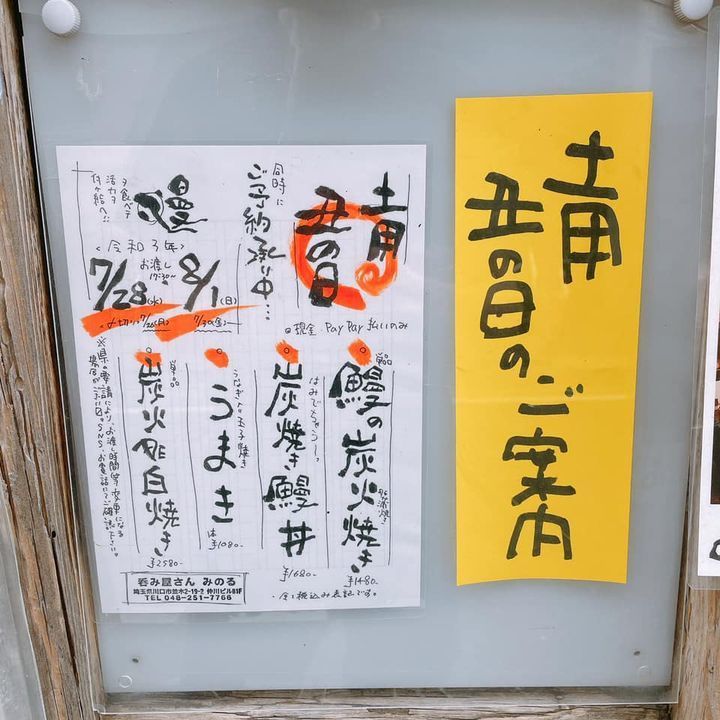 土用
丑の日のご案内
土用
丑の日
同時に
ご予約承り中…
鰻
夕食べテ
活力ヲ
<令和3年>
お渡し
17:30〜
7/28(水)
8/1(日)
〆切り7/26(月)
7/30(金)
◎現金 PayPay 払いのみ
単品
鰻の炭火焼き
¥1480-
はみでちゃうし〜っ
炭焼き鰻丼
¥1680-
うなぎ入り玉子焼き
うまき
1本
¥1080-
単品
炭火de白焼き
¥2580-
※県の要請により、お渡し時間等変更になる
場合がございます。SNS、お電話にてご確認下さい。
・全て税込み表記です。
呑み屋さん みのる
埼玉県川口市並木2-19-2 仲川ビルB1F
TEL 048-251-7766